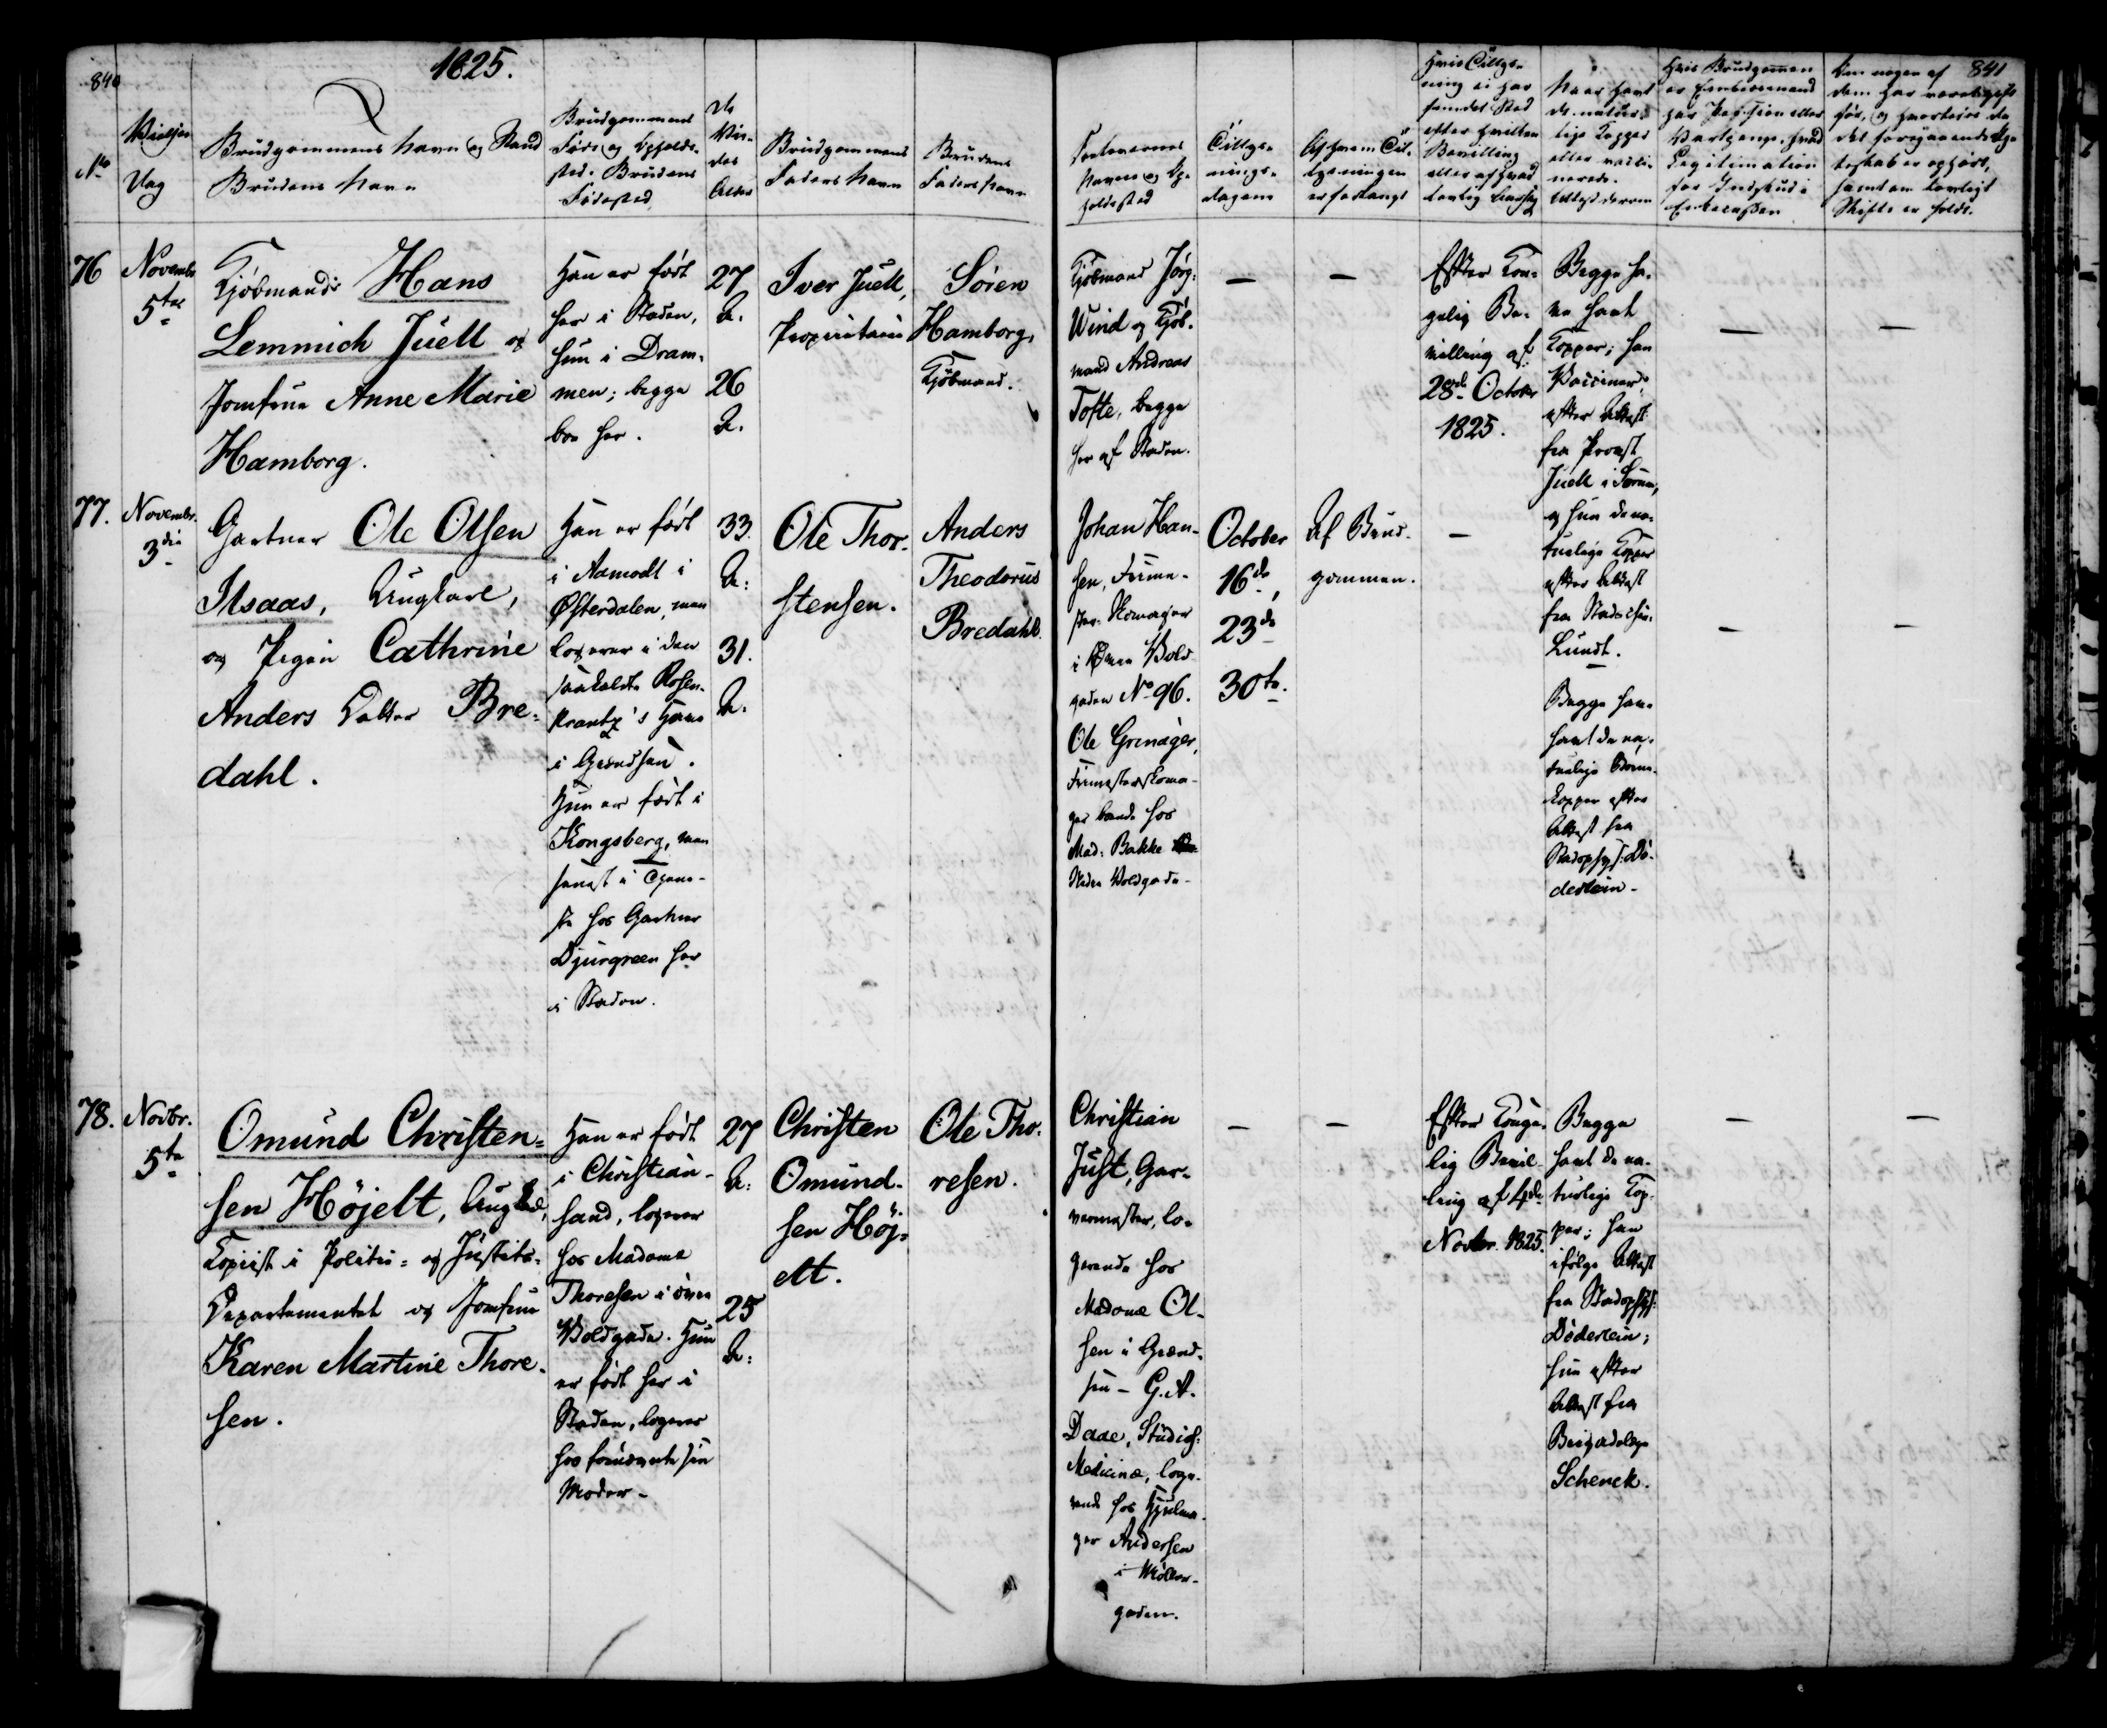 840
1825.
841
No
Vielses
Dag
Brudgommens Navn og Stand
Brudens Navn
Brudgommens
Føde og Opholds-
sted. Brudens
Fødested
De
Vie-
des
Alder
Brudgommens
Faders Navn
Brudens
Faders Navn
Forlovernes
Navne og Op-
holdssted
Tillys-
nings-
dagene
Af hvem Til-
lysningen
er forlangt
Hvis Tillys-
ning ei har
fundet Sted
efter hvilken
Bevilling
eller af hvad
lovlig
Naar havt
de natur-
lige Kopper
eller vacci-
nerede.
Attest derom
Hvis Brudgommen
er Embedsmand
har Pension eller
Vartpenge, hvad
Legitimation
for Indskud i
Enkecassen
Om nogen af
dem har været gift
før, og hvorledes da
det foregaaende Æg-
teskab er ophørt,
samt om lovligt
Skifte er holdt.
76
Novembr
5te
Kjøbmand Hans
Lemmich Juell og
Jomfrue Anne Marie
Hamborg.
Han er født
her i Staden,
hun i Dram-
men; begge
boe her.
27
A.
26
A.
Iver Juell,
Proprietair
Sören
Hamborg,
Kjøbmand.
Kjøbmand Jörg:
Wind og Kjøb-
mand Andreas
Tofte, begge
her af Staden.
—
—
Efter Kon-
gelig Be-
villing af
28de October
1825.
Begge ha-
ve havt
Kopper; han
Vaccinerede
efter Attest
fra Provst
Juell i Sörum,
og hun de na-
turlige Kopper
efter Attest
fra Stadschir:
Lundt.
—
—
77.
Novembr.
3die
Gartner Ole Olsen
Ilsaas, Ungkarl,
og Pigen Cathrine
Anders Datter Bre-
dahl.
Han er født
i Aamodt i
Østerdalen, men
logerer i den
saakaldte Rosen-
krantz's Have
i Grændsen.
Hun er født i
Kongsberg, men
senest i Tjene-
ste hos Gartner
Djurgreen her
i Staden.
33.
A:
31.
A.
Ole Thor-
stensen.
Anders
Theodorus
Bredahl.
Johan Han-
sen, Frime-
ster-Skomager
i Øvre Vold-
gaden No 96.
Ole Grinager,
Frimesterskoma-
ger boende hos
Mad: Bakke
Nedre Voldgade-
October
16de,
23de
30te.
Af Brud-
gommen.
—
Begge have
havt de na-
turlige Børne-
kopper efter
Attest fra
Stadsphys: Dö-
derlein-
—
—
78.
Novbr.
5te
Omund Christen-
sen Höjelt, Ungkarl,
Kopiist i Politie- og Justits-
Departementet og Jomfrue
Karen Martine Thore-
sen.
Han er født
i Christian-
sand, logerer
hos Madame
Thoresen i øvre
Voldgade. Hun
er født her i
Staden, logerer
hos fornævnte sin
Moder-
27
A:
25
A:
Christen
Omund-
sen Höj-
elt.
Ole Tho-
resen.
Christian
Just, Gar-
vermester, lo-
gerende hos
Madame Ol-
sen i Grænd-
sen - G. A.
Daae, Studios:
Medicinæ, loge-
rende hos Hjulma-
ger Andersen
i Möller-
gaden.
—
—
Efter Konge-
lig Bevil-
ling af 4de
Novbr. 1825.
Begge
havt de na-
turlige Kop-
per; han
ifølge Attest
fra Stadsphys:
Döderlein;
hun efter
Attest fra
Brigadelæge
Schenck.
—
—